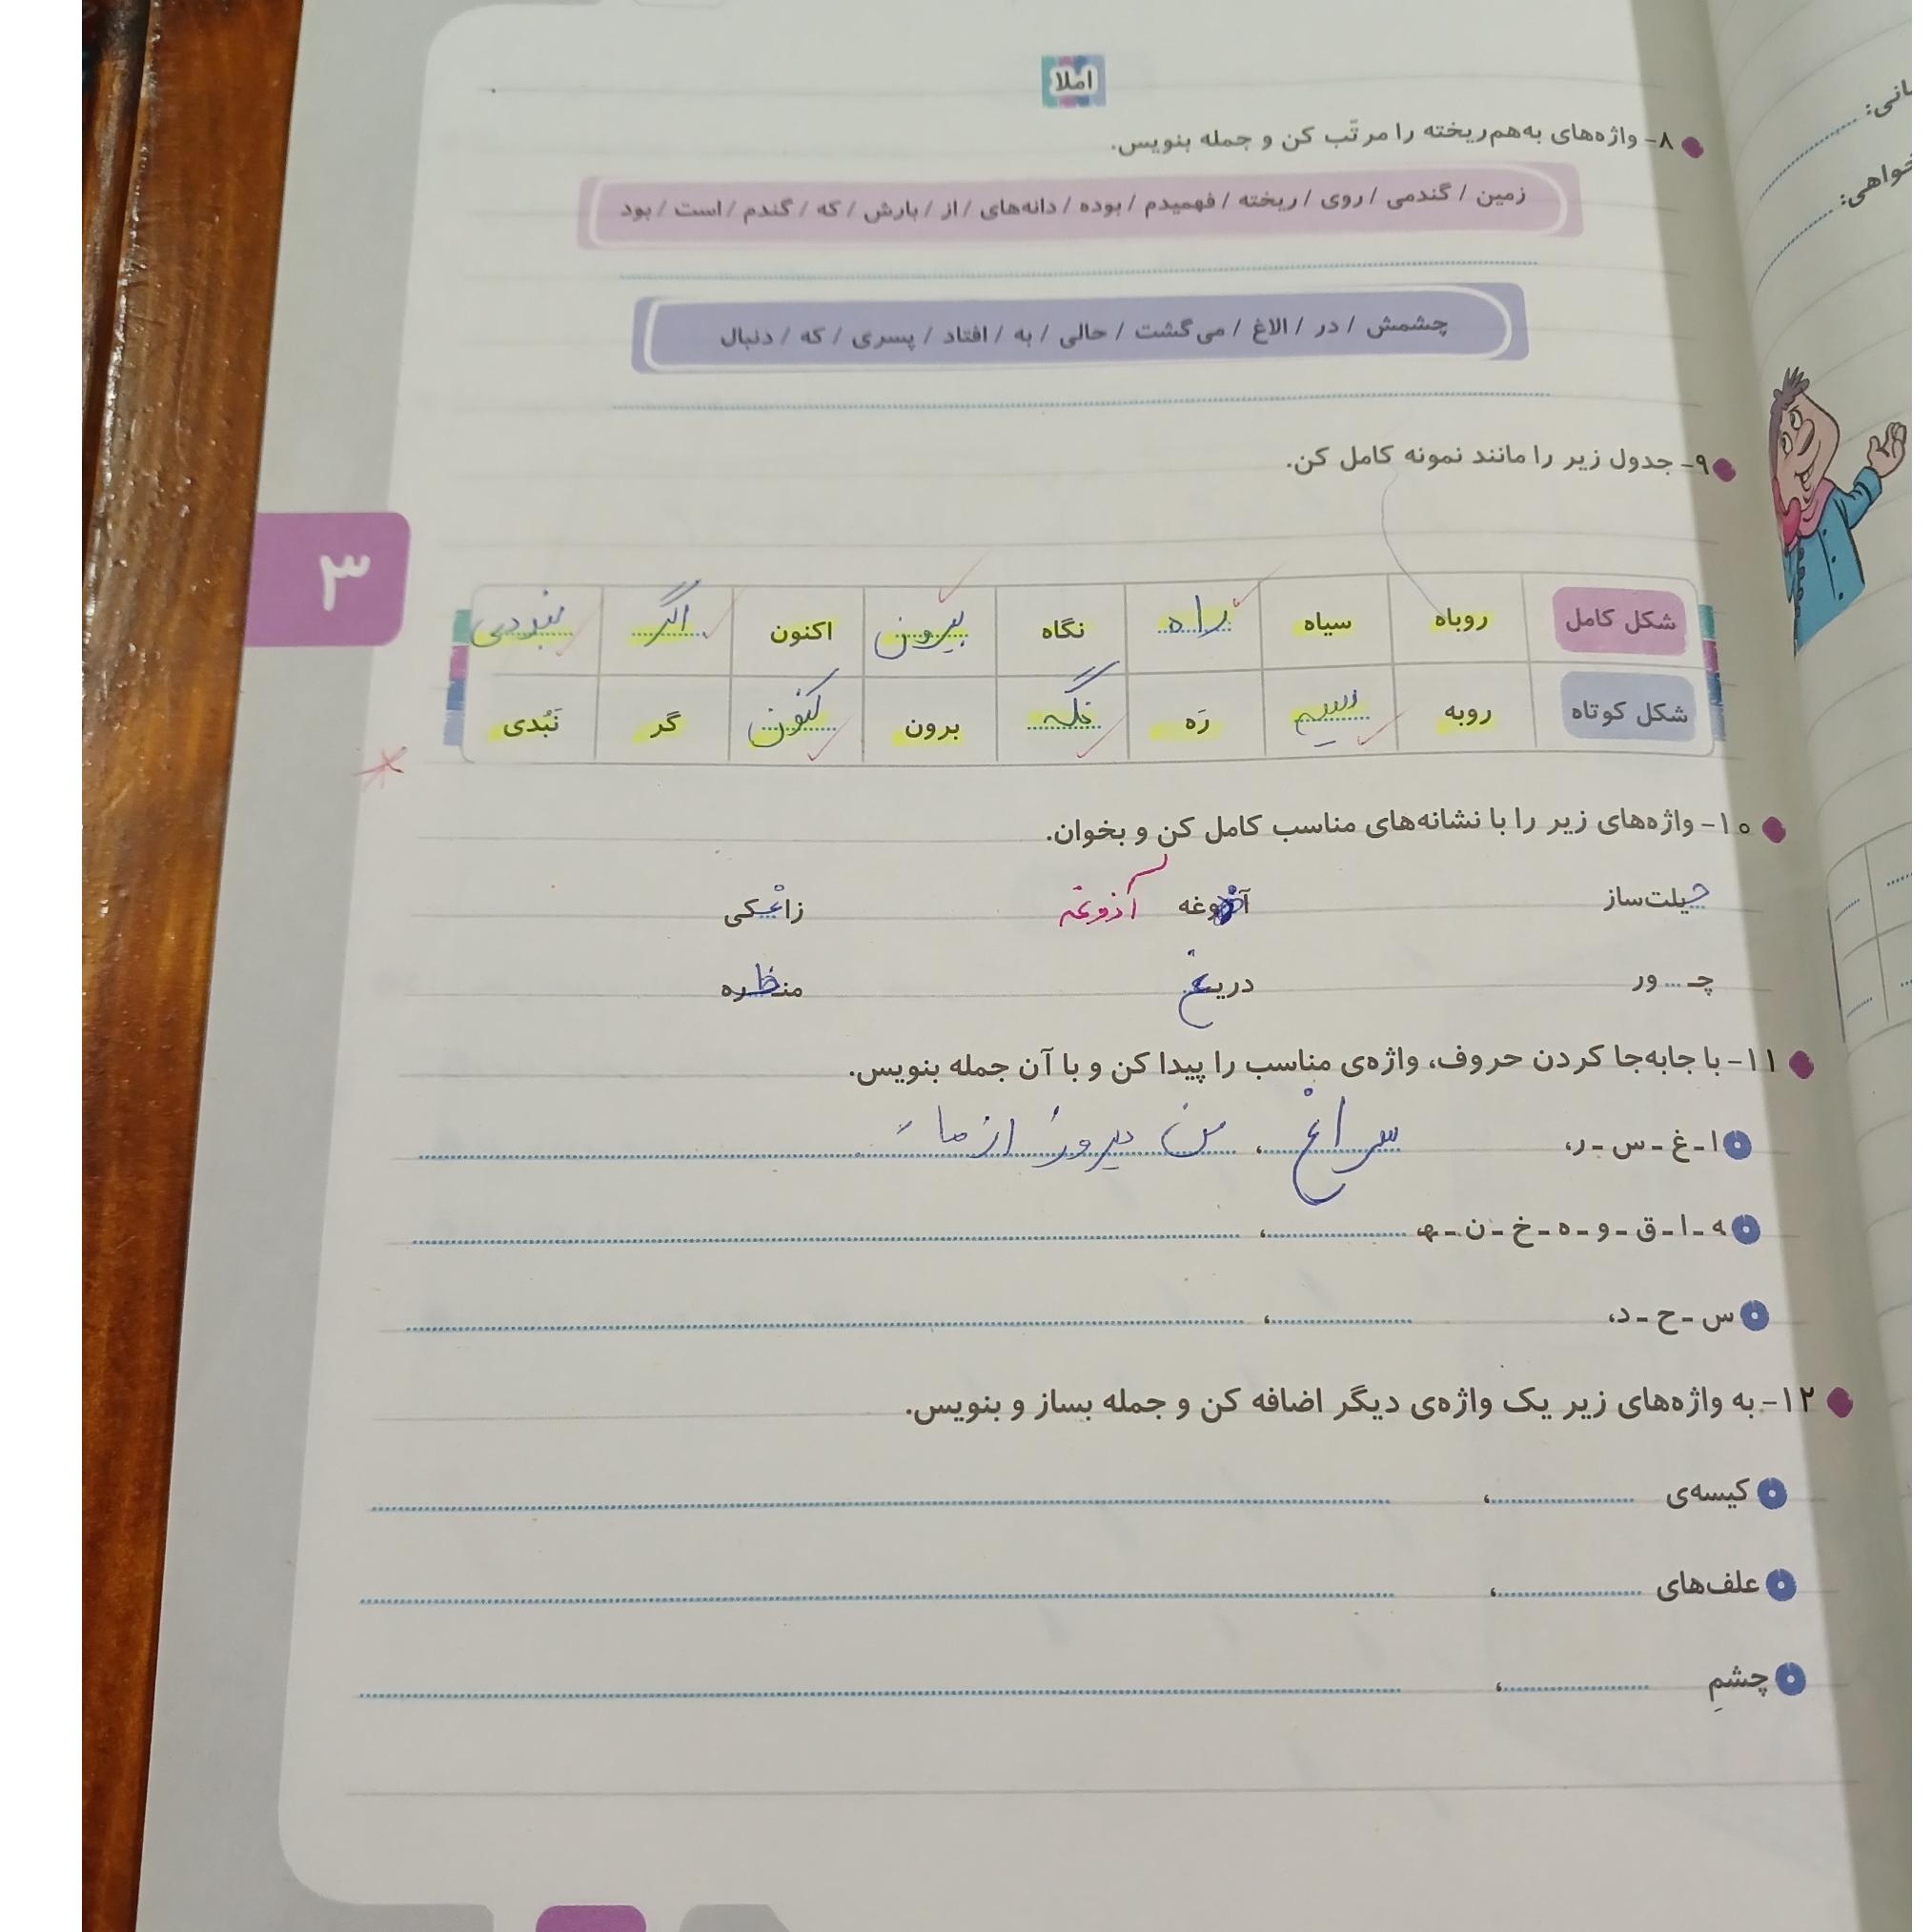 املا
۸- واژه‌های به‌هم‌ریخته را مرتّب کن و جمله بنویس.
زمین / گندمی / روی / ریخته / فهمیدم / بوده / دانه‌های / از / بارش / که / گندم / است / بود
چشمش / در / الاغ / می‌گشت / حالی / به / افتاد / پسری / که / دنبال
۹- جدول زیر را مانند نمونه کامل کن.
شکل کامل روباه سیاه راه نگاه بیرون اکنون اگر نبودی
شکل کوتاه روبه سیه رَه نگه برون کنون گر نَبُدی
۳
۱۰- واژه‌های زیر را با نشانه‌های مناسب کامل کن و بخوان.
حیلت‌ساز آذوغه آذوغه زاغکی
چـ ... ور دریغ منظره
۱۱- با جابه‌جا کردن حروف، واژه‌ی مناسب را پیدا کن و با آن جمله بنویس.
ا - غ - س - ر، سراغ ، من دیروز از ما
ه - ا - ق - و - ه - خ - ن - هـ ،
س - ح - د، ،
۱۲- به واژه‌های زیر یک واژه‌ی دیگر اضافه کن و جمله بساز و بنویس.
کیسه‌ی ،
علف‌های ،
چشمِ ،
انی:
خواهی: